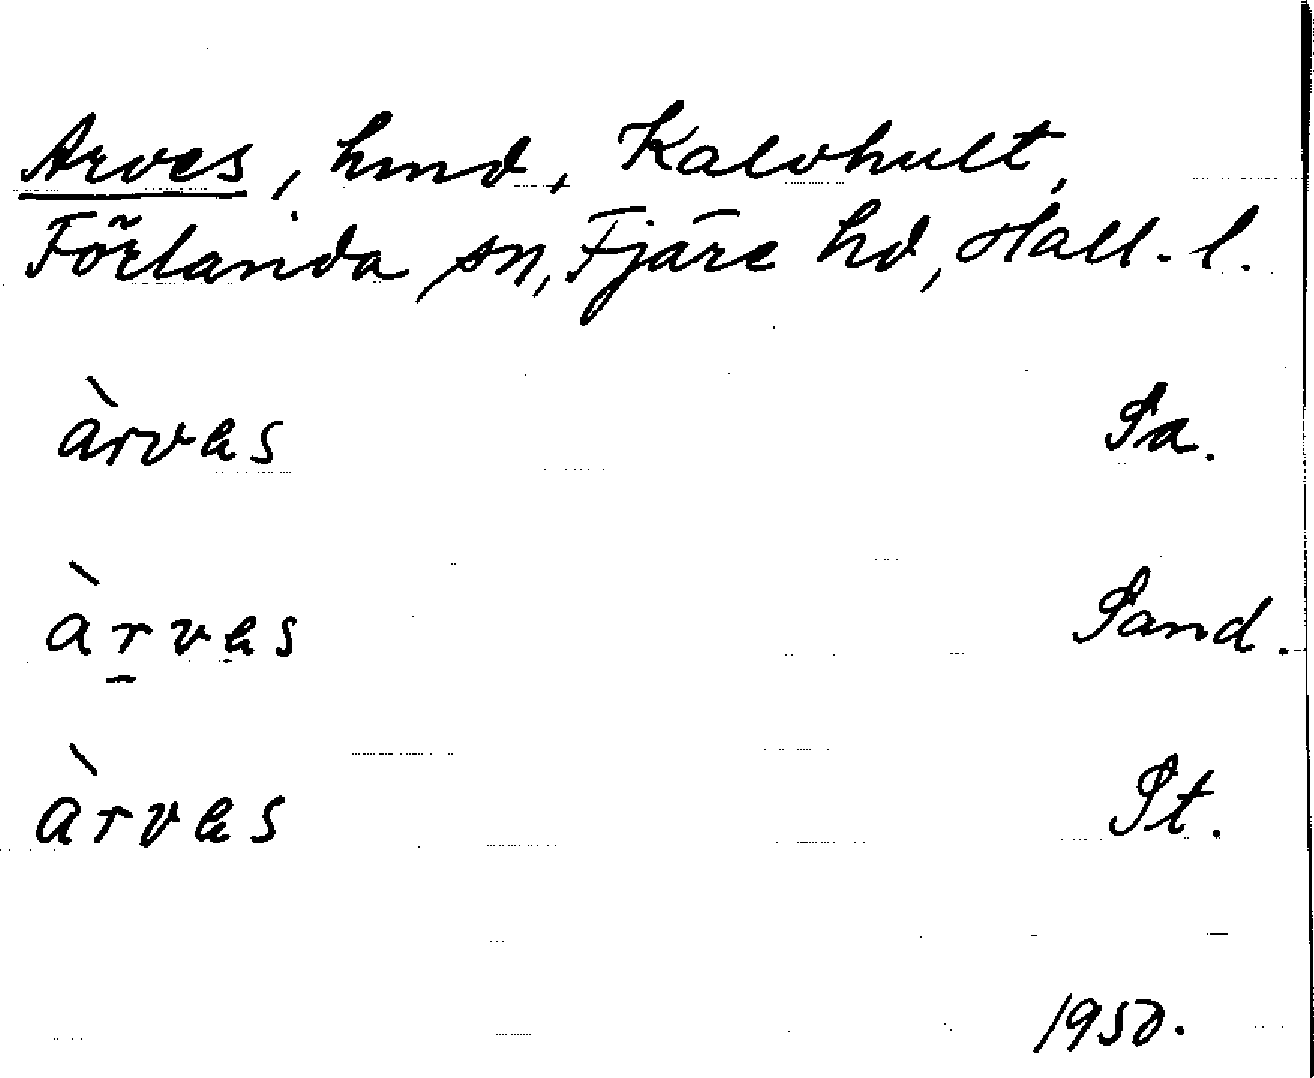 Arves, hmd, Kalvhult,
Förlanda sn, Fjäre hd, Hall. l.
àrvas Sa.
àrvas Sand.
àrvas St.
1950.